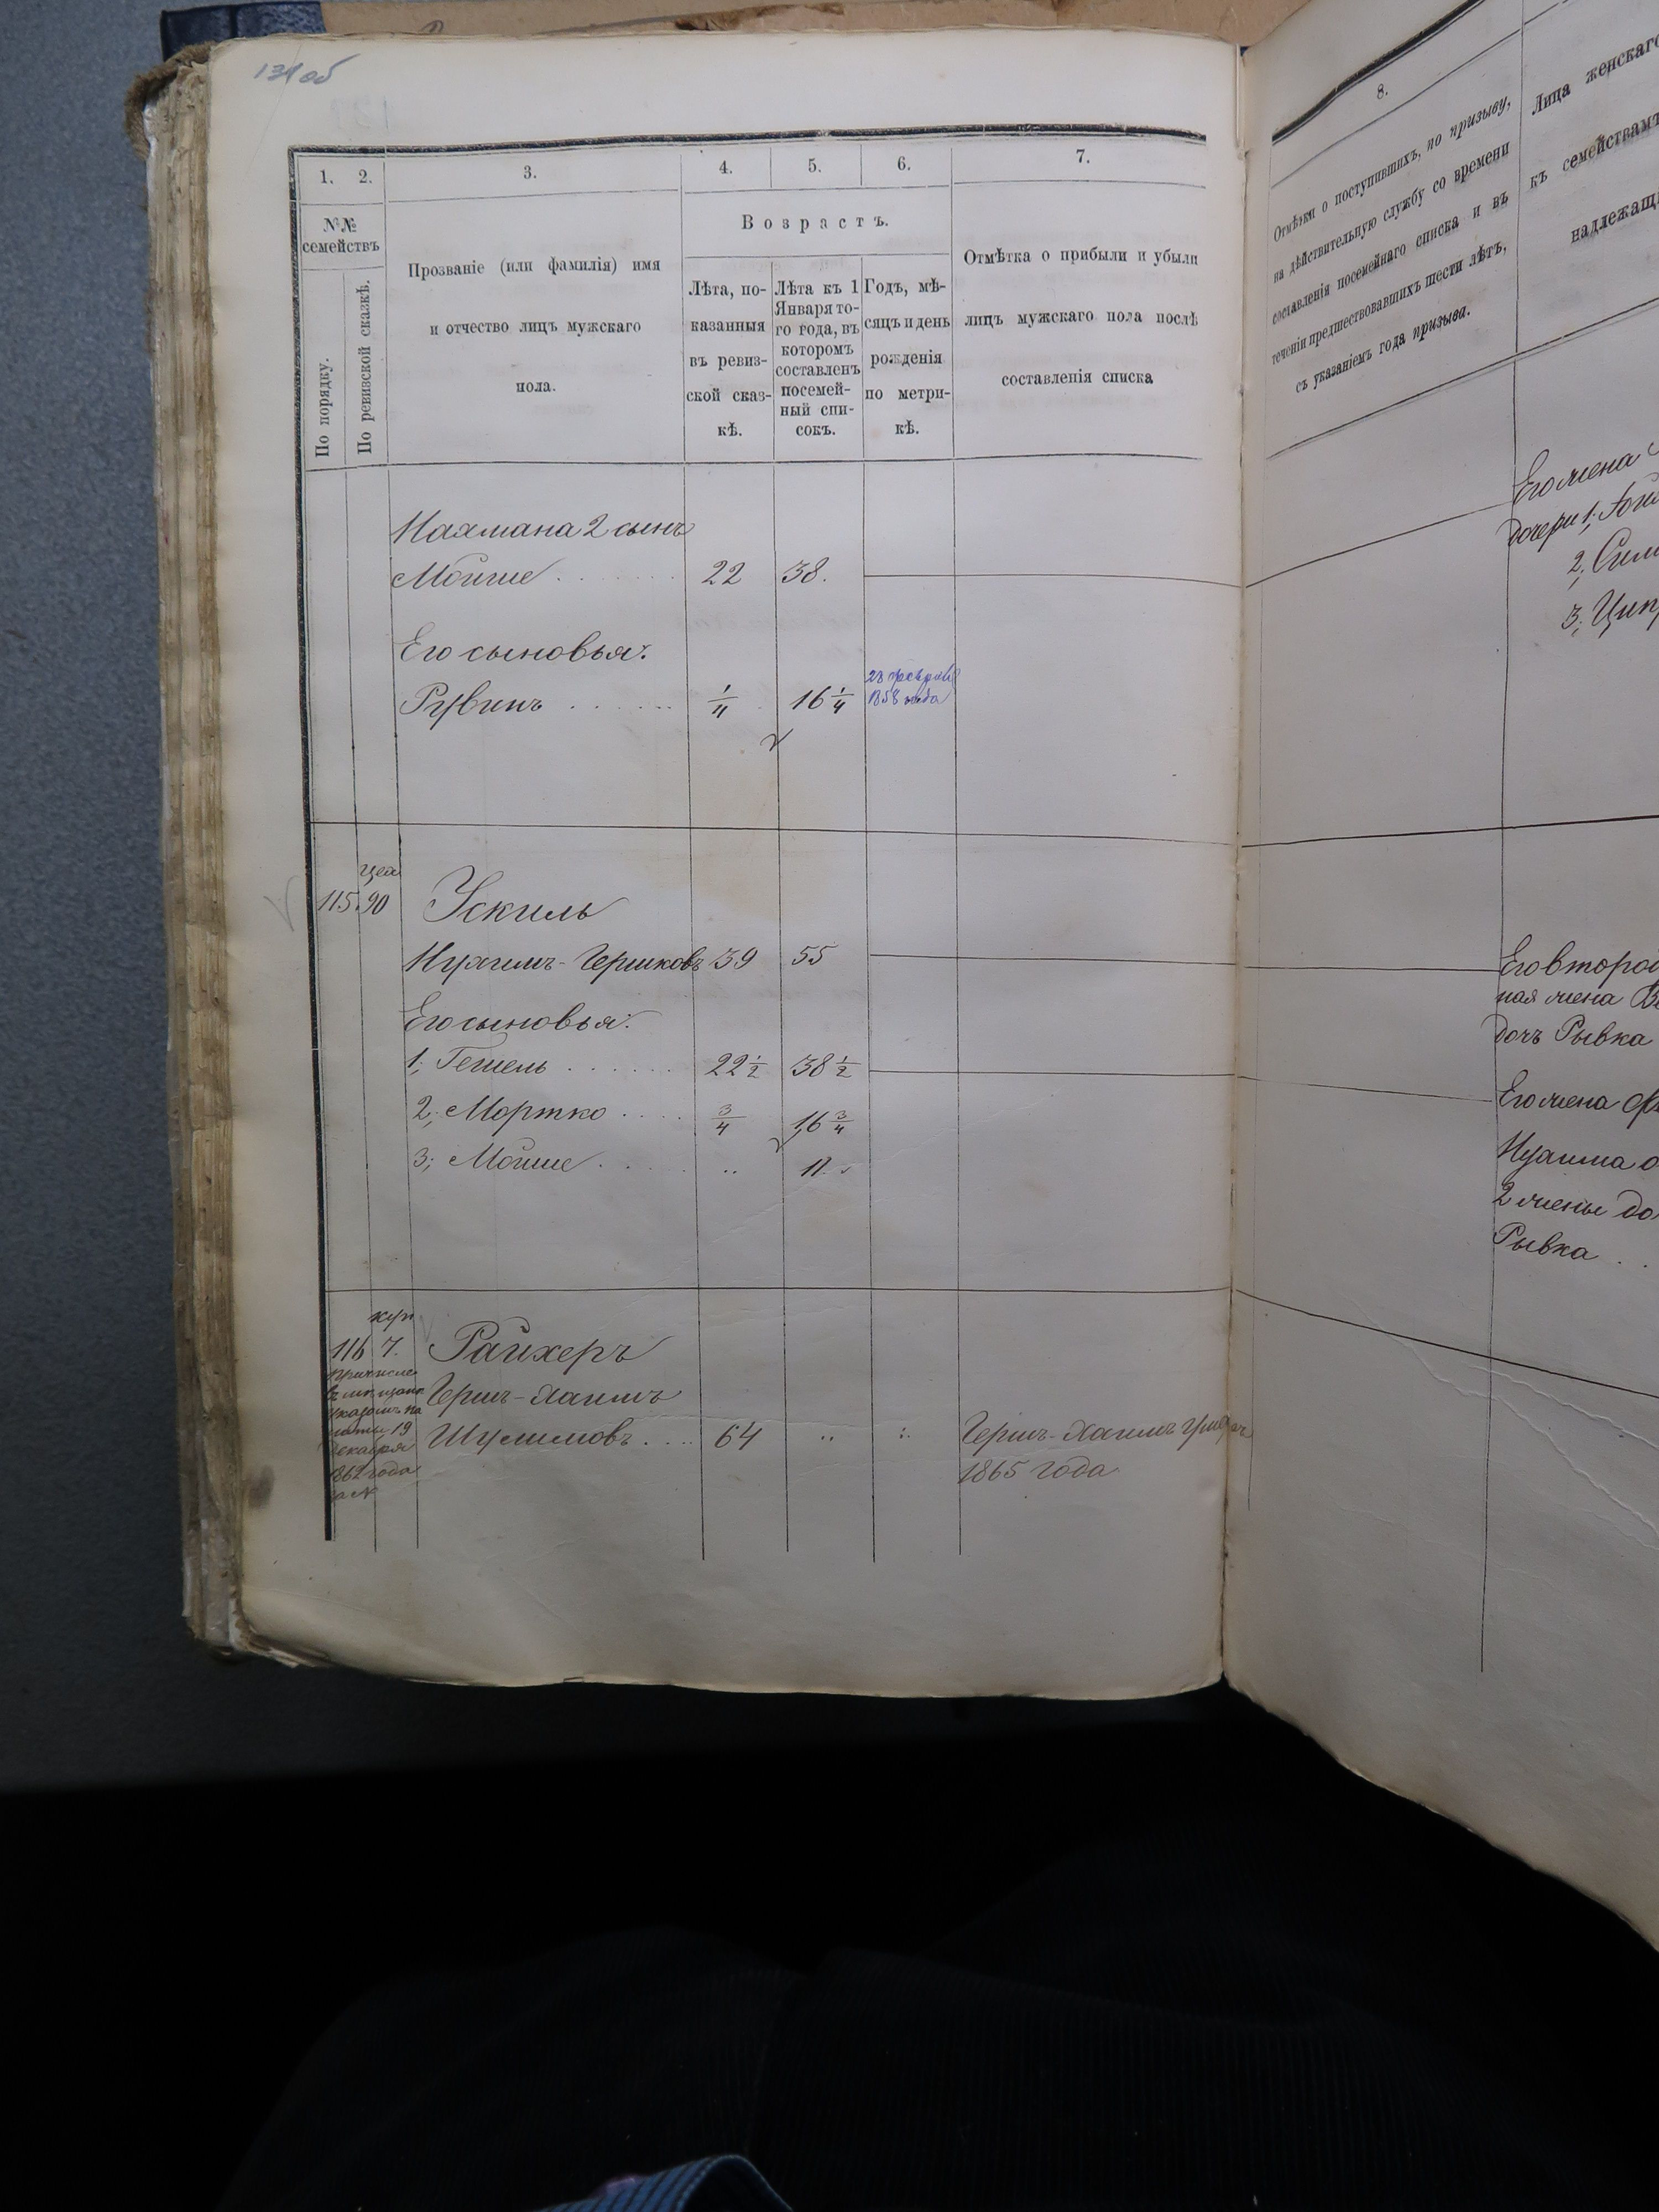 134 об
1. 2. 3. 4. 5. 6. 7.
№№ семействъ
По порядку.
По ревизской сказкѣ.
Прозваніе (или фамилія) имя
и отчество лицъ мужскаго
пола.
Возрастъ.
Лѣта, по-
казанныя
въ ревиз-
ской сказ-
кѣ.
Лѣта къ 1
Января то-
го года, въ
которомъ
составленъ
посемей-
ный спи-
сокъ.
Годъ, мѣ-
сяцъ и день
рожденія
по метри-
кѣ.
Отмѣтка о прибыли и убыли
лицъ мужскаго пола послѣ
составленія списка
Нахмана 2 сынъ
Мойше 22 38.
Его сыновья:
Рувинъ 1/11 16 1/4
1858 года
115. 90 Ускиль
Нухимъ-Гершковъ 39 55
Его сыновья:
1; Гешель 22 1/2 38 1/2
2; Мортко 3/4 16 3/4
3; Мойше .. 11.
куп
116 7. Райхеръ
Гершъ-Хаимъ
Шулимовъ 64
19
декабря
1862 года
за №
Гершъ-Хаимъ умеръ
1865 года
8.
Отмѣтки о поступившихъ, по призыву,
на дѣйствительную службу со времени
составленія посемейнаго списка и въ
теченіи предшествовавшихъ шести лѣтъ,
съ указаніемъ года призыва.
Лица женскаго
къ семействамъ
надлежащ
Его жена
дочери 1;
2;
3; Ципр
Его второ
ная жена
дочь Рывка
Его жена
Нухима
2 жены до
Рывка